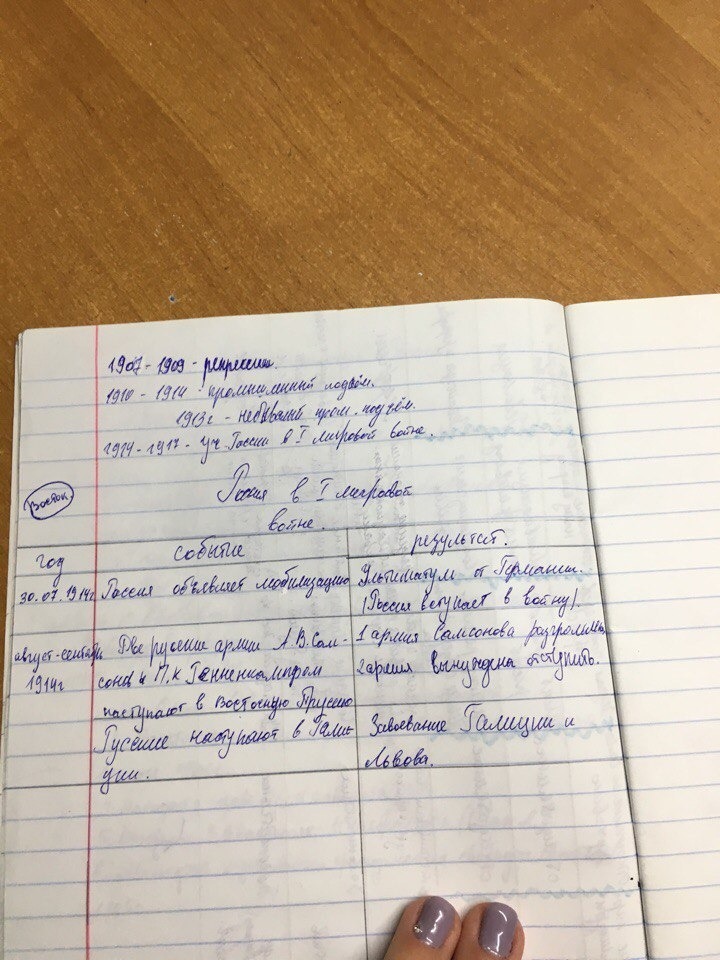 1907-1909 - репрессии.
1910 - 1914 - промышленный подъём.
1913г - небывалый пром. подъём.
1914-1917 - уч. России в I мировой войне.
Восток
Россия в I мировой
войне.
год
событие
результат.
30.07.1914г
Россия объявляет мобилизацию
Ультиматум от Германии.
(Россия вступает в войну).
август-сентябрь
1914г
Две русские армии А.В.Сам-
сонов и П.К Ренненкампром
наступают в Восточную Пруссию
1 армия Самсонова разгромлена
2 армия вынуждена отступить.
Русские наступают в Гали-
ции.
Завоевание Галиции и
Львова.